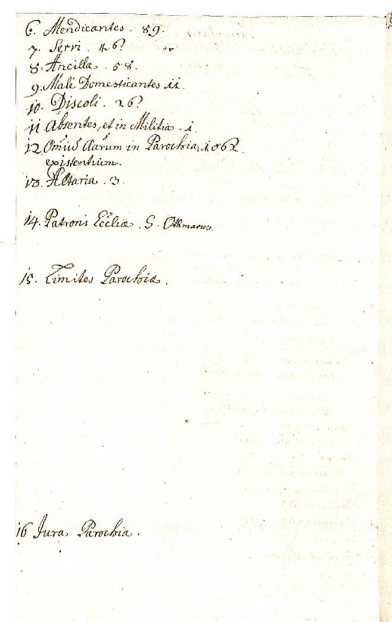 6. Mendicantes. 89.
7. Servi. 26.
8. Ancillæ. 58.
9. Malè Domesticantes 11.
10. Discoli. 26.
11 Absentes, et in Militia. 1
12 Omiũ Aãrum in Parochia, 1062
existentium.
13. Altaria. 3.
14. Patroni Eccliæ. S. Othmarus.
15. Limites Parochiæ.
16 Jura Parochia.